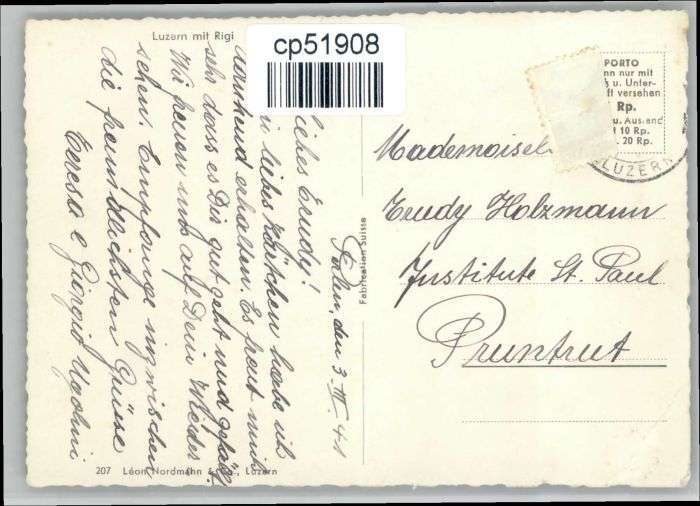 Luzern mit Rigi
cp51908
PORTO
nn nur mit
s u. Unter-
ft versehen
Rp.
u. Ausland
t 10 Rp.
. 20 Rp.
LUZERN
den 3. III. 41
liebes Trudy!
liebes Kärtchen habe ich
dankend erhalten. Es freut mich
sehr dass es Dir gut geht und gefällt.
Wir freuen uns auf Dein Wieder
sehen. Empfange inzwischen
die freundlichsten Grüsse
Teresa e Giorgio Ugolini
Mademoisel
Trudy Holzmann
Institute St. Paul
Pruntrut
Fabrication Suisse
207 Léon Nordmann & Co., Luzern